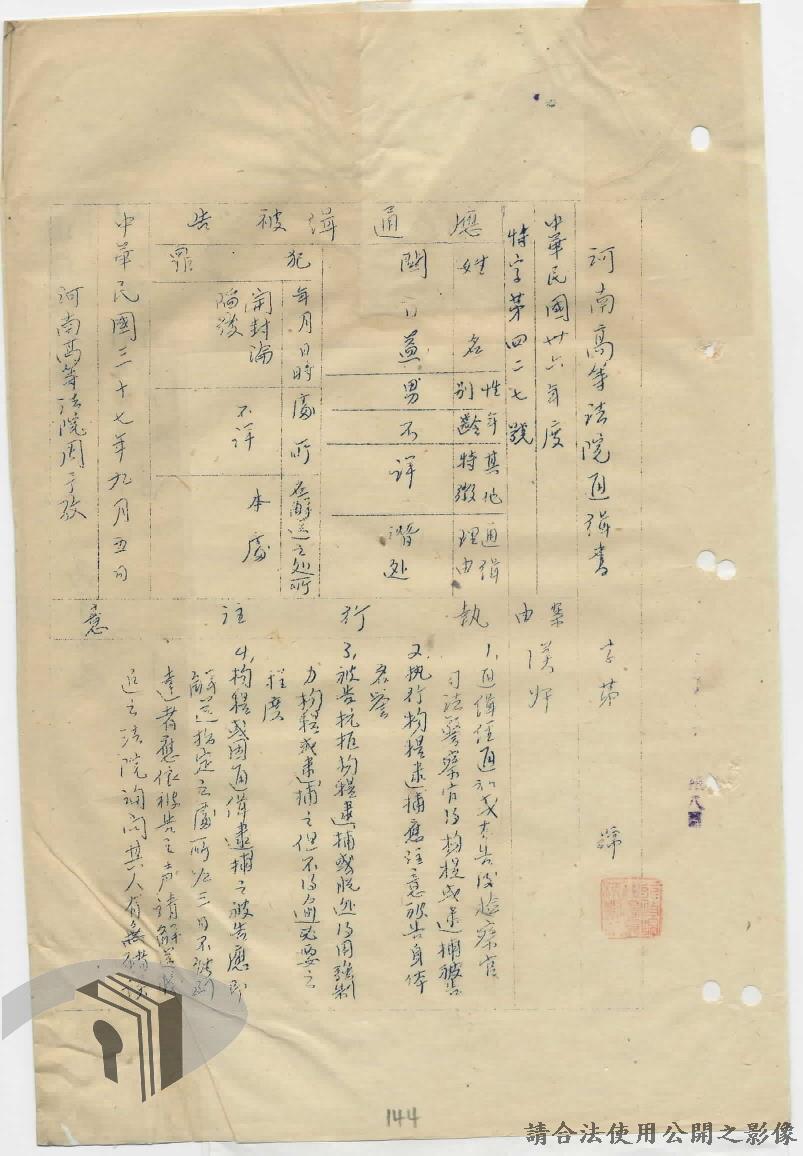 河南高等法院通緝書 字第 號
中華民國卅六年度
特字第四二七號
案由 漢奸
應通緝被告
姓名
性別
年齡
其他特徵
通緝理由
男
不詳
潛处
犯罪
年月日時
處所
應解送之处所
開封淪陷後
不詳
本處
中華民國三十七年九月五日
河南高等法院周
執行注意
1、通緝經通知或布告後檢察官
司法警察官得拘提或逮捕被告
2、执行拘提逮捕應注意被告身体
名譽
3、被告抗拒拘提逮捕或脱逃得用強制
力拘提或逮捕之但不得逾必要之
程度
4、拘提或因通緝逮捕之被告應即
解送指定之處所如三日不能到
達者應依被告之声請解送
近之法院詢問其人有無錯誤
144
請合法使用公開之影像